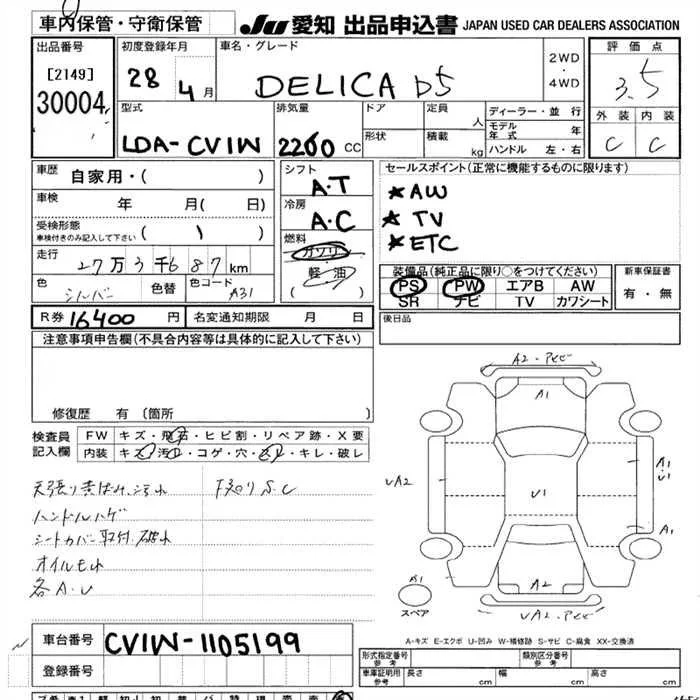 車内保管・守衛保管 JU 愛知 出品申込書 JAPAN USED CAR DEALERS ASSOCIATION
出品番号 初度登録年月 車名・グレード 2WD・4WD 評価点
[2149] 28 4月 DELICA D5 3.5
30004 外装 内装
型式 排気量 ドア 定員 人 ディーラー・並行
LDA-CV1W 2260 CC 形状 積載 kg モデル年式 年 C C
ハンドル 左・右
車歴 自家用・( ) シフト セールスポイント(正常に機能するものに限ります)
A・T ★AW
車検 年 月( 日) 冷房 ★TV
受検形態 A・C ★ETC
車検付きのみ記入して下さい ( )
走行 27万3千687km 燃料 ガソリン 装備品(純正品に限り○をつけてください) 新車保証書
軽・油 PS PW エアB AW 有・無
色 シルバー 色替 色コード A31 ( ) SR ナビ TV カワシート
R券 16400円 名変通知期限 月 日 後日品
注意事項申告欄(不具合内容等は具体的に記入して下さい)
修復歴 有 〔箇所 〕
検査員 FW キズ・飛石・ヒビ割・リペア跡・X要
記入欄 内装 キズ・汚れ・コゲ・穴・スレ・キレ・破レ
天張り黄ばみ、汚れ 下廻りS.C
ハンドルハゲ
シートカバー取付.破れ
オイルもれ
各A.U
A2
A1
UA2
U1
A1
U1
A1
A2
B1
スペア
UA2
A-キズ E-エクボ U-凹み W-補修跡 S-サビ C-腐食 XX-交換済
車台番号 CV1W-1105199
登録番号
形式指定番号 参考 類別区分番号 参考
車庫証明用 参考 長さ cm 幅 cm 高さ cm